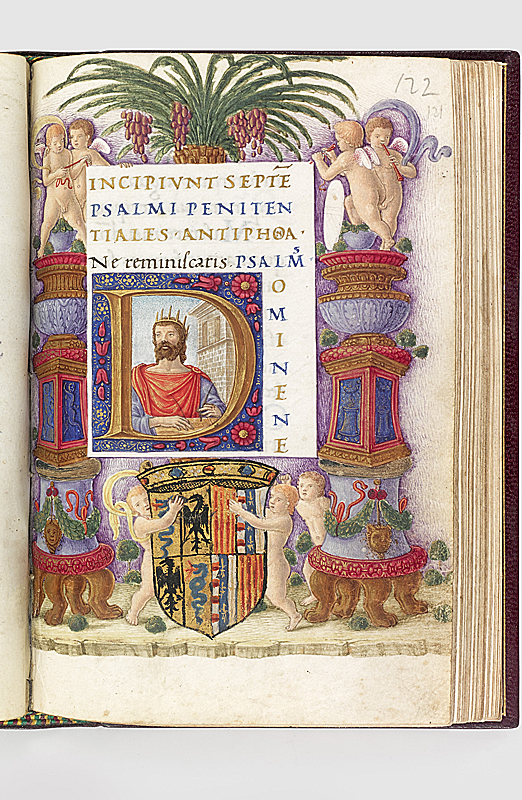 122
121
INCIPIVNT SEPTĒ
PSALMI PENITEN
TIALES·ANTIPHOA·
Ne reminiscaris. PSALM̄S
D
O
M
I
N
E
N
E